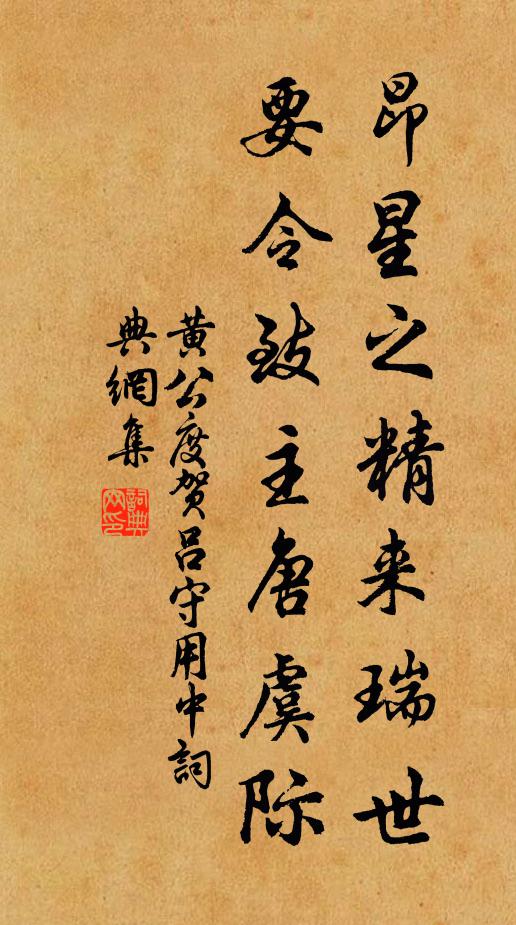 昂星之精来瑞世
要令致主唐虞际
黄公度贺吕守用中詞
典網集
詞典网印